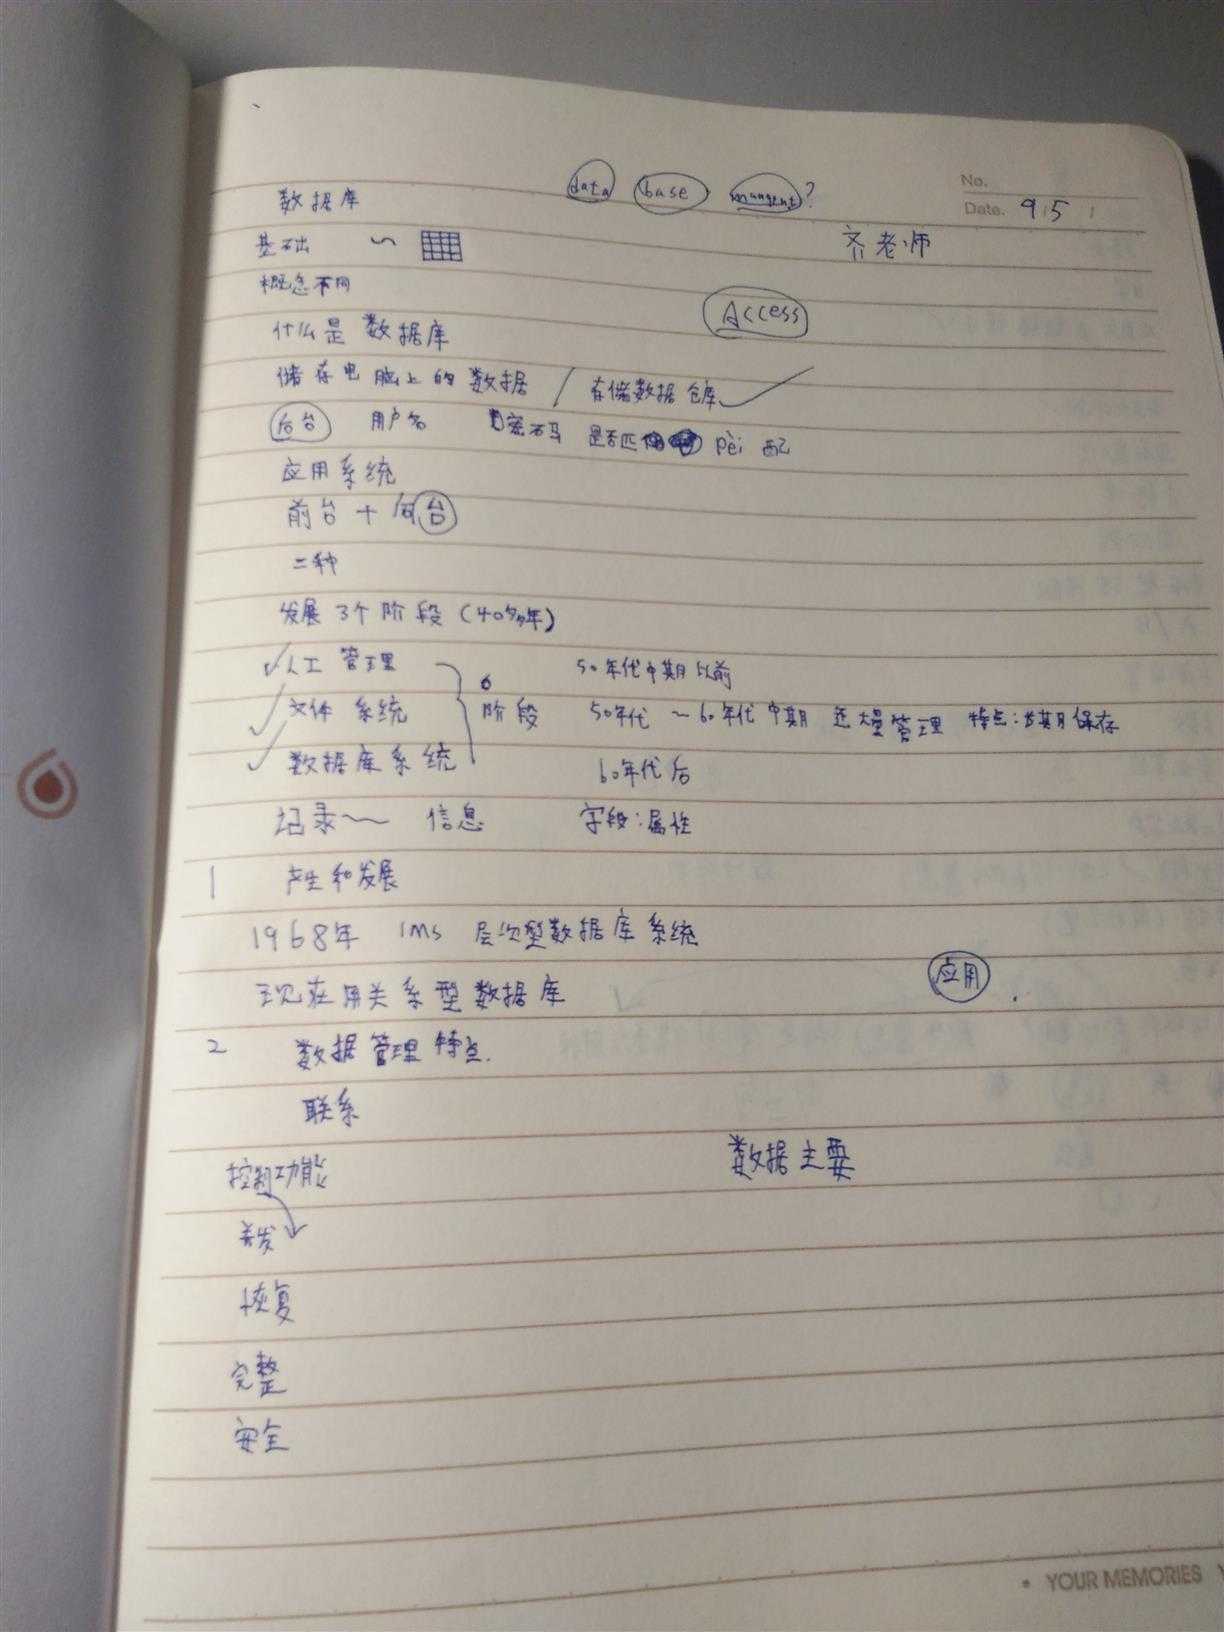 No.
data base mangent?
数据库
Date. 9 / 5 /
基础 ~
齐老师
概念不同
Access
什么是数据库
储存电脑上的数据 / 存储数据仓库 ✓
后台 用户名 密码 是否匹 pèi 配
应用系统
前台 + 后台
二种
发展3个阶段(40多年)
✓人工管理 50年代中期以前
✓文件系统 阶段 50年代 ~ 60年代中期 大量管理 特点:长期保存
✓数据库系统 60年代后
记录~ 信息 字段:属性
1 产生和发展
1968年 IMS 层次型数据库系统
现在用关系型数据库 应用
2 数据管理特点.
联系
数据主要
控制功能
并发
恢复
完整
安全
• YOUR MEMORIES